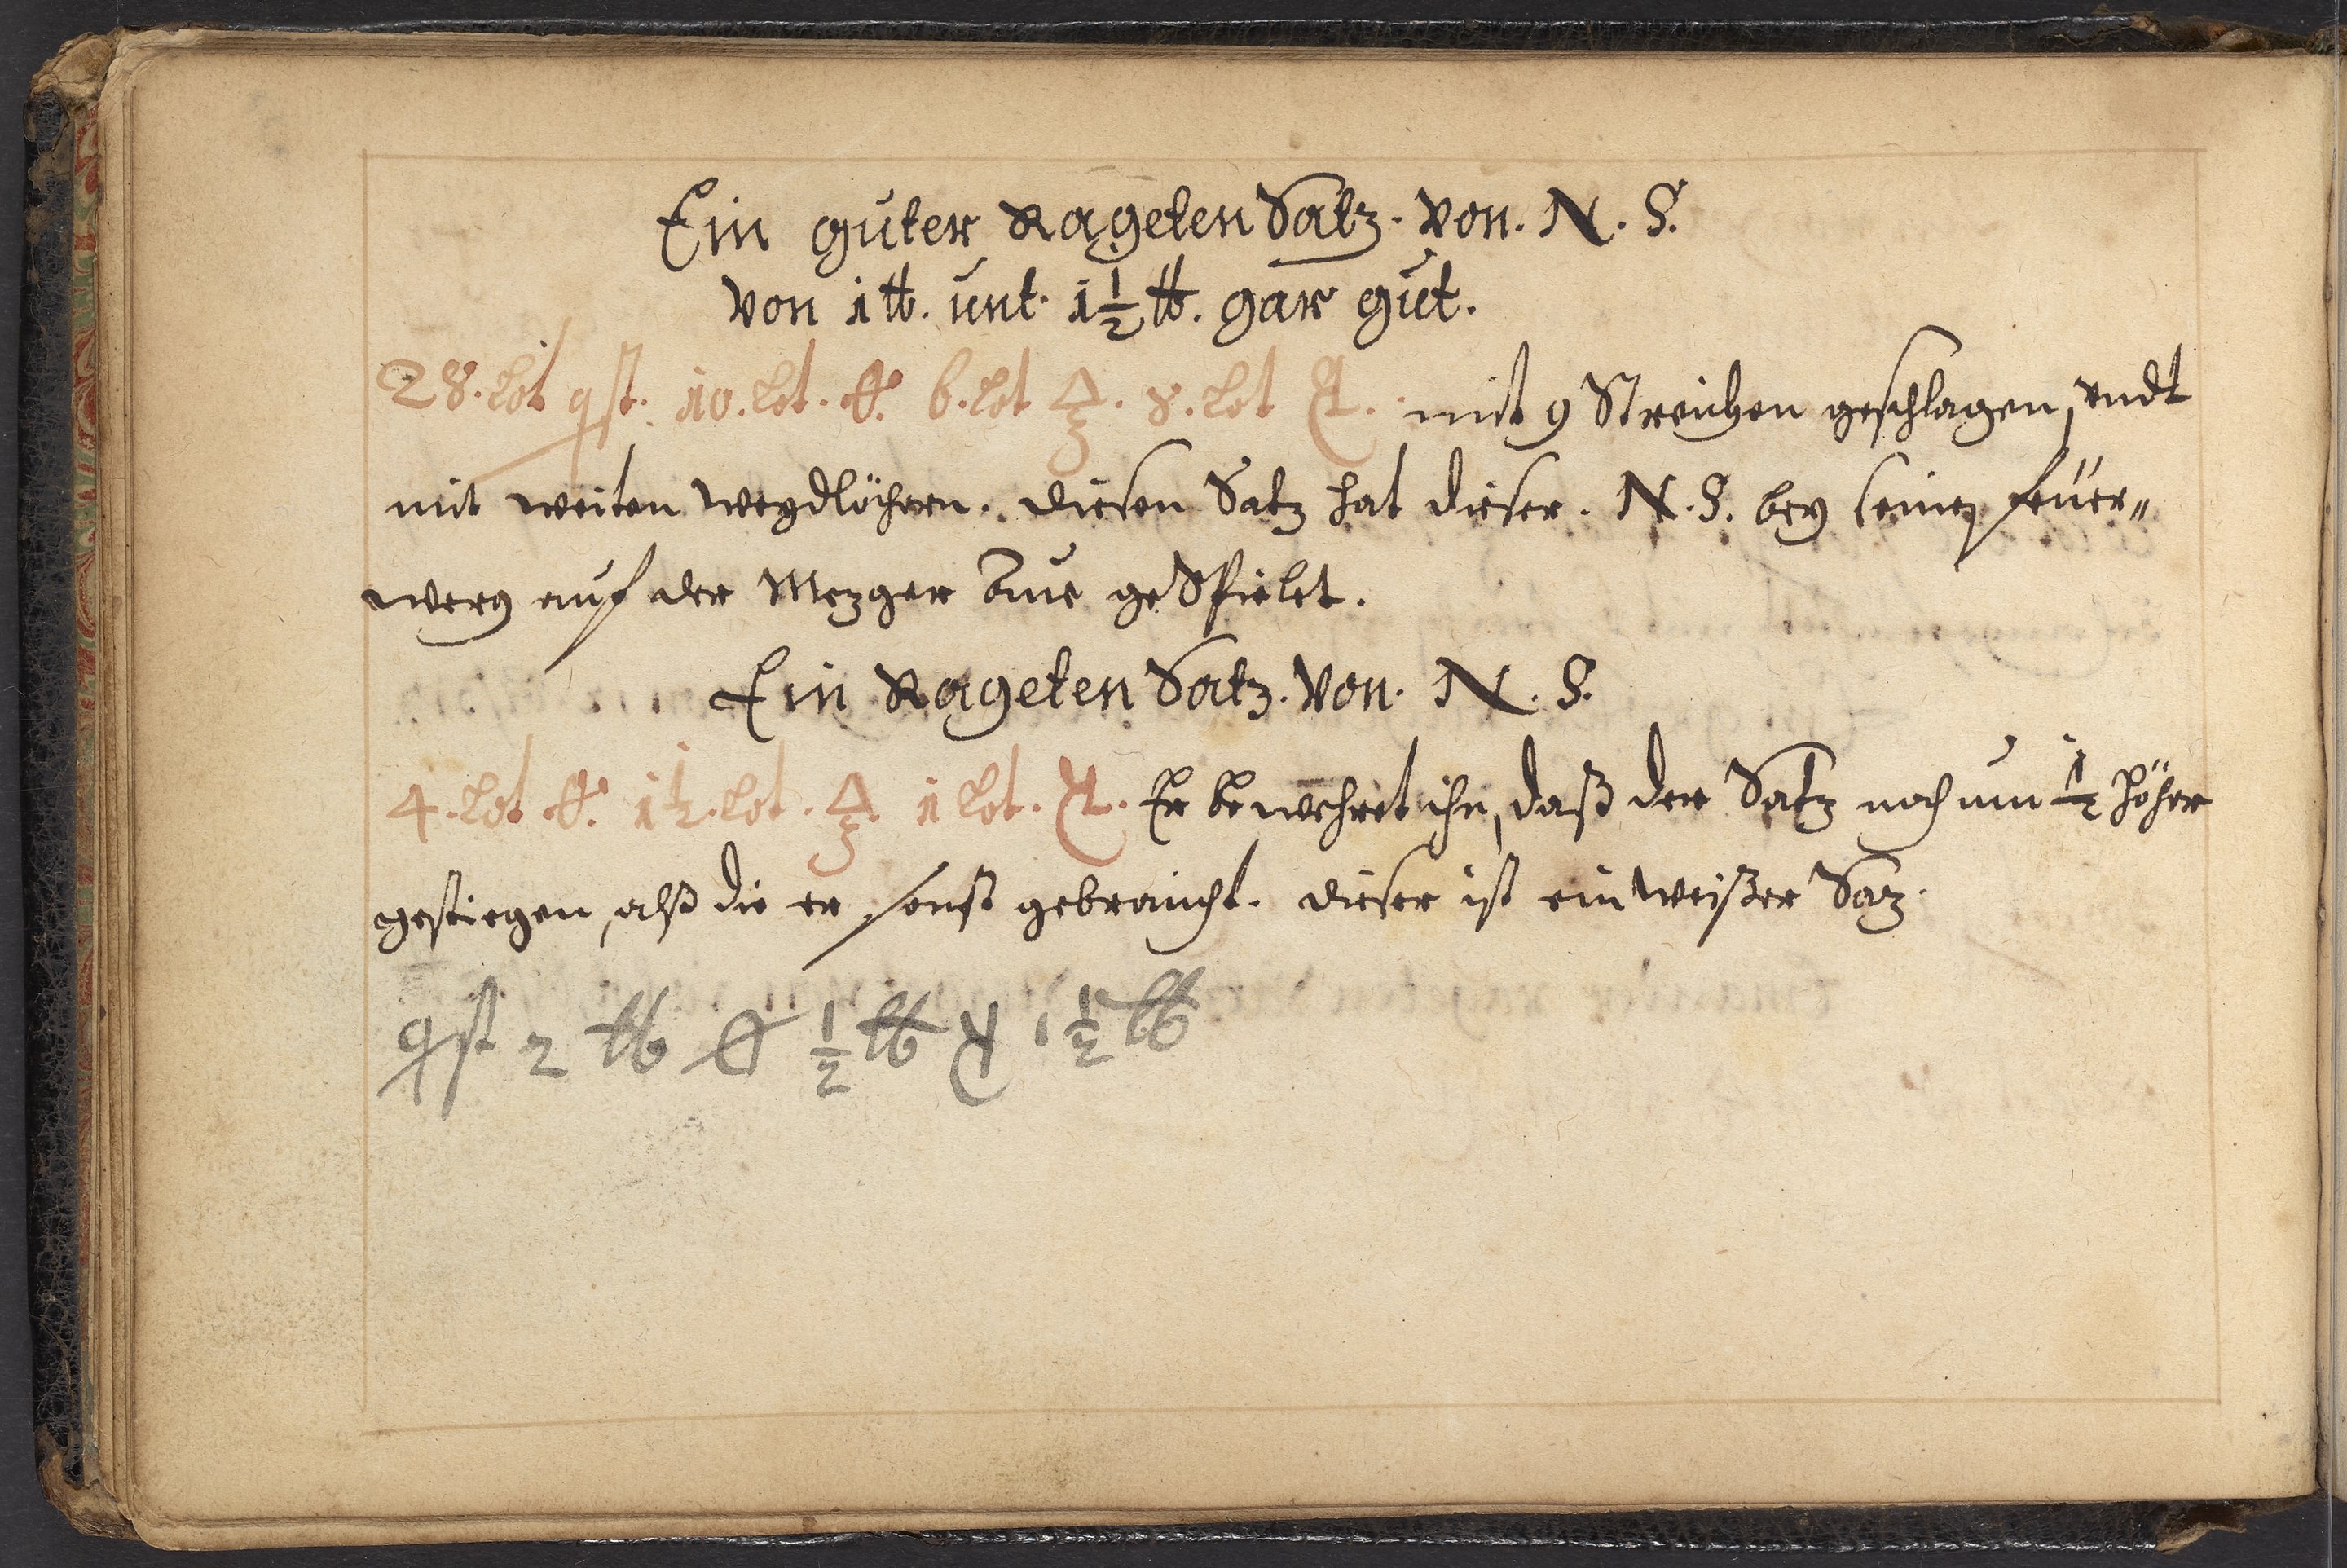 Ein guter Rageten Satz. von. N. S.
von 1 ℔. unt. 1 1/2 ℔. gar gut.
28. lot qst. 10. lot. 6. lot 8. lot mit 9 Streichen geschlagen, undt
mit weiten weydlöchern. diesen Satz hat dieser. N. S. bey seinen feuer„
werg auf der Mezger Aue geSpielet.
Ein Rageten Satz. von. N. S.
4. lot 1 1/2. lot. 1 lot. Er bewehret ihn, daß der Satz noch um 1/2 höher
gestiegen, alß die er sonst gebraucht. dieser ist ein weißer Saz.
qst 2 ℔ 1/2 ℔ 1 1/2 ℔